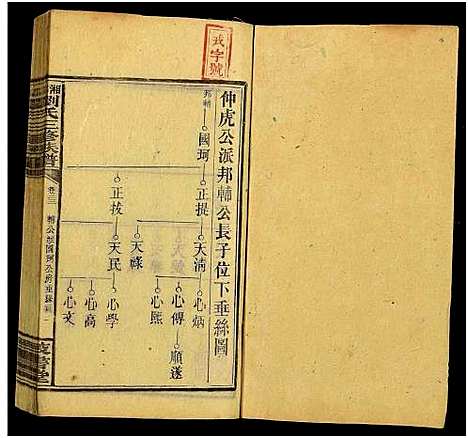 戎字號
仲虎公派邦輔公長子位下垂絲圖
邦輔
國珂
正提
正拔
天淸
天祿
天民
心炳
心傳
心熙
心學
心高
心文
順遂
湘劉氏三修族譜
卷三
輔公派國珂公房垂絲圖